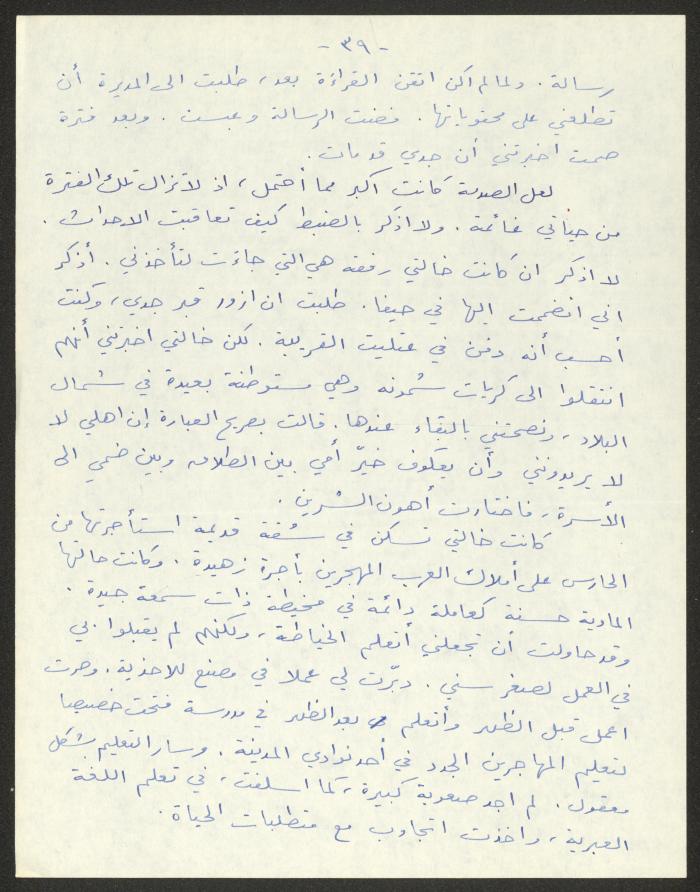 - ٣٩ -
رسالة. ولما لم اكن اتقن القراءة بعد، طلبت الى المديرة أن
تطلعني على محتوياتها. فضت الرسالة وعبست. وبعد فترة
صمت اخبرتني أن جدي قد مات.
لعل الصدمة كانت اكبر مما أحتمل، اذ لا تزال تلك الفترة
من حياتي غائمة. ولا اذكر بالضبط كيف تعاقبت الاحداث.
لا اذكر ان كانت خالتي رفقه هي التي جاءت لتأخذني. أذكر
اني انضممت اليها في حيفا. طلبت ان ازور قبر جدي، وكنت
أحسب أنه دفن في عتليت القريبة. لكن خالتي اخبرتني أنهم
انتقلوا الى كريات شمونه وهي مستوطنة بعيدة في شمال
البلاد، ونصحتني بالبقاء عندها. قالت بصريح العبارة إن اهلي لا
لا يريدونني وأن يعكوف خيّر أمي بين الطلاق وبين ضمي الى
الأسرة، فاختارت أهون الشرين.
كانت خالتي تسكن في شقة قديمة استأجرتها من
الحارس على أملاك العرب المهجرين بأجرة زهيدة. وكانت حالتها
المادية حسنة كعاملة دائمة في مخيطة ذات سمعة جيدة.
وقد حاولت أن تجعلني أتعلم الخياطة، ولكنهم لم يقبلوا بي
في العمل لصغر سني. دبّرت لي عملا في مصنع للاحذية. وصرت
اعمل قبل الظهر وأتعلم بعد الظهر في مدرسة فتحت خصيصا
لتعليم المهاجرين الجدد في أحد نوادي المدينة. وسار التعليم بشكل
معقول. لم اجد صعوبة كبيرة، كما اسلفت، في تعلم اللغة
العبرية، واخذت اتجاوب مع متطلبات الحياة.